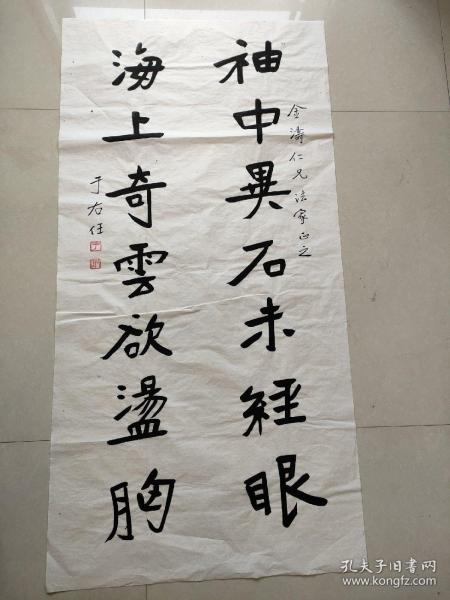 袖中異石未經眼
金濤仁兄法家正之
海上奇雲欲盪胸
于右任
孔夫子旧书网
www.kongfz.com